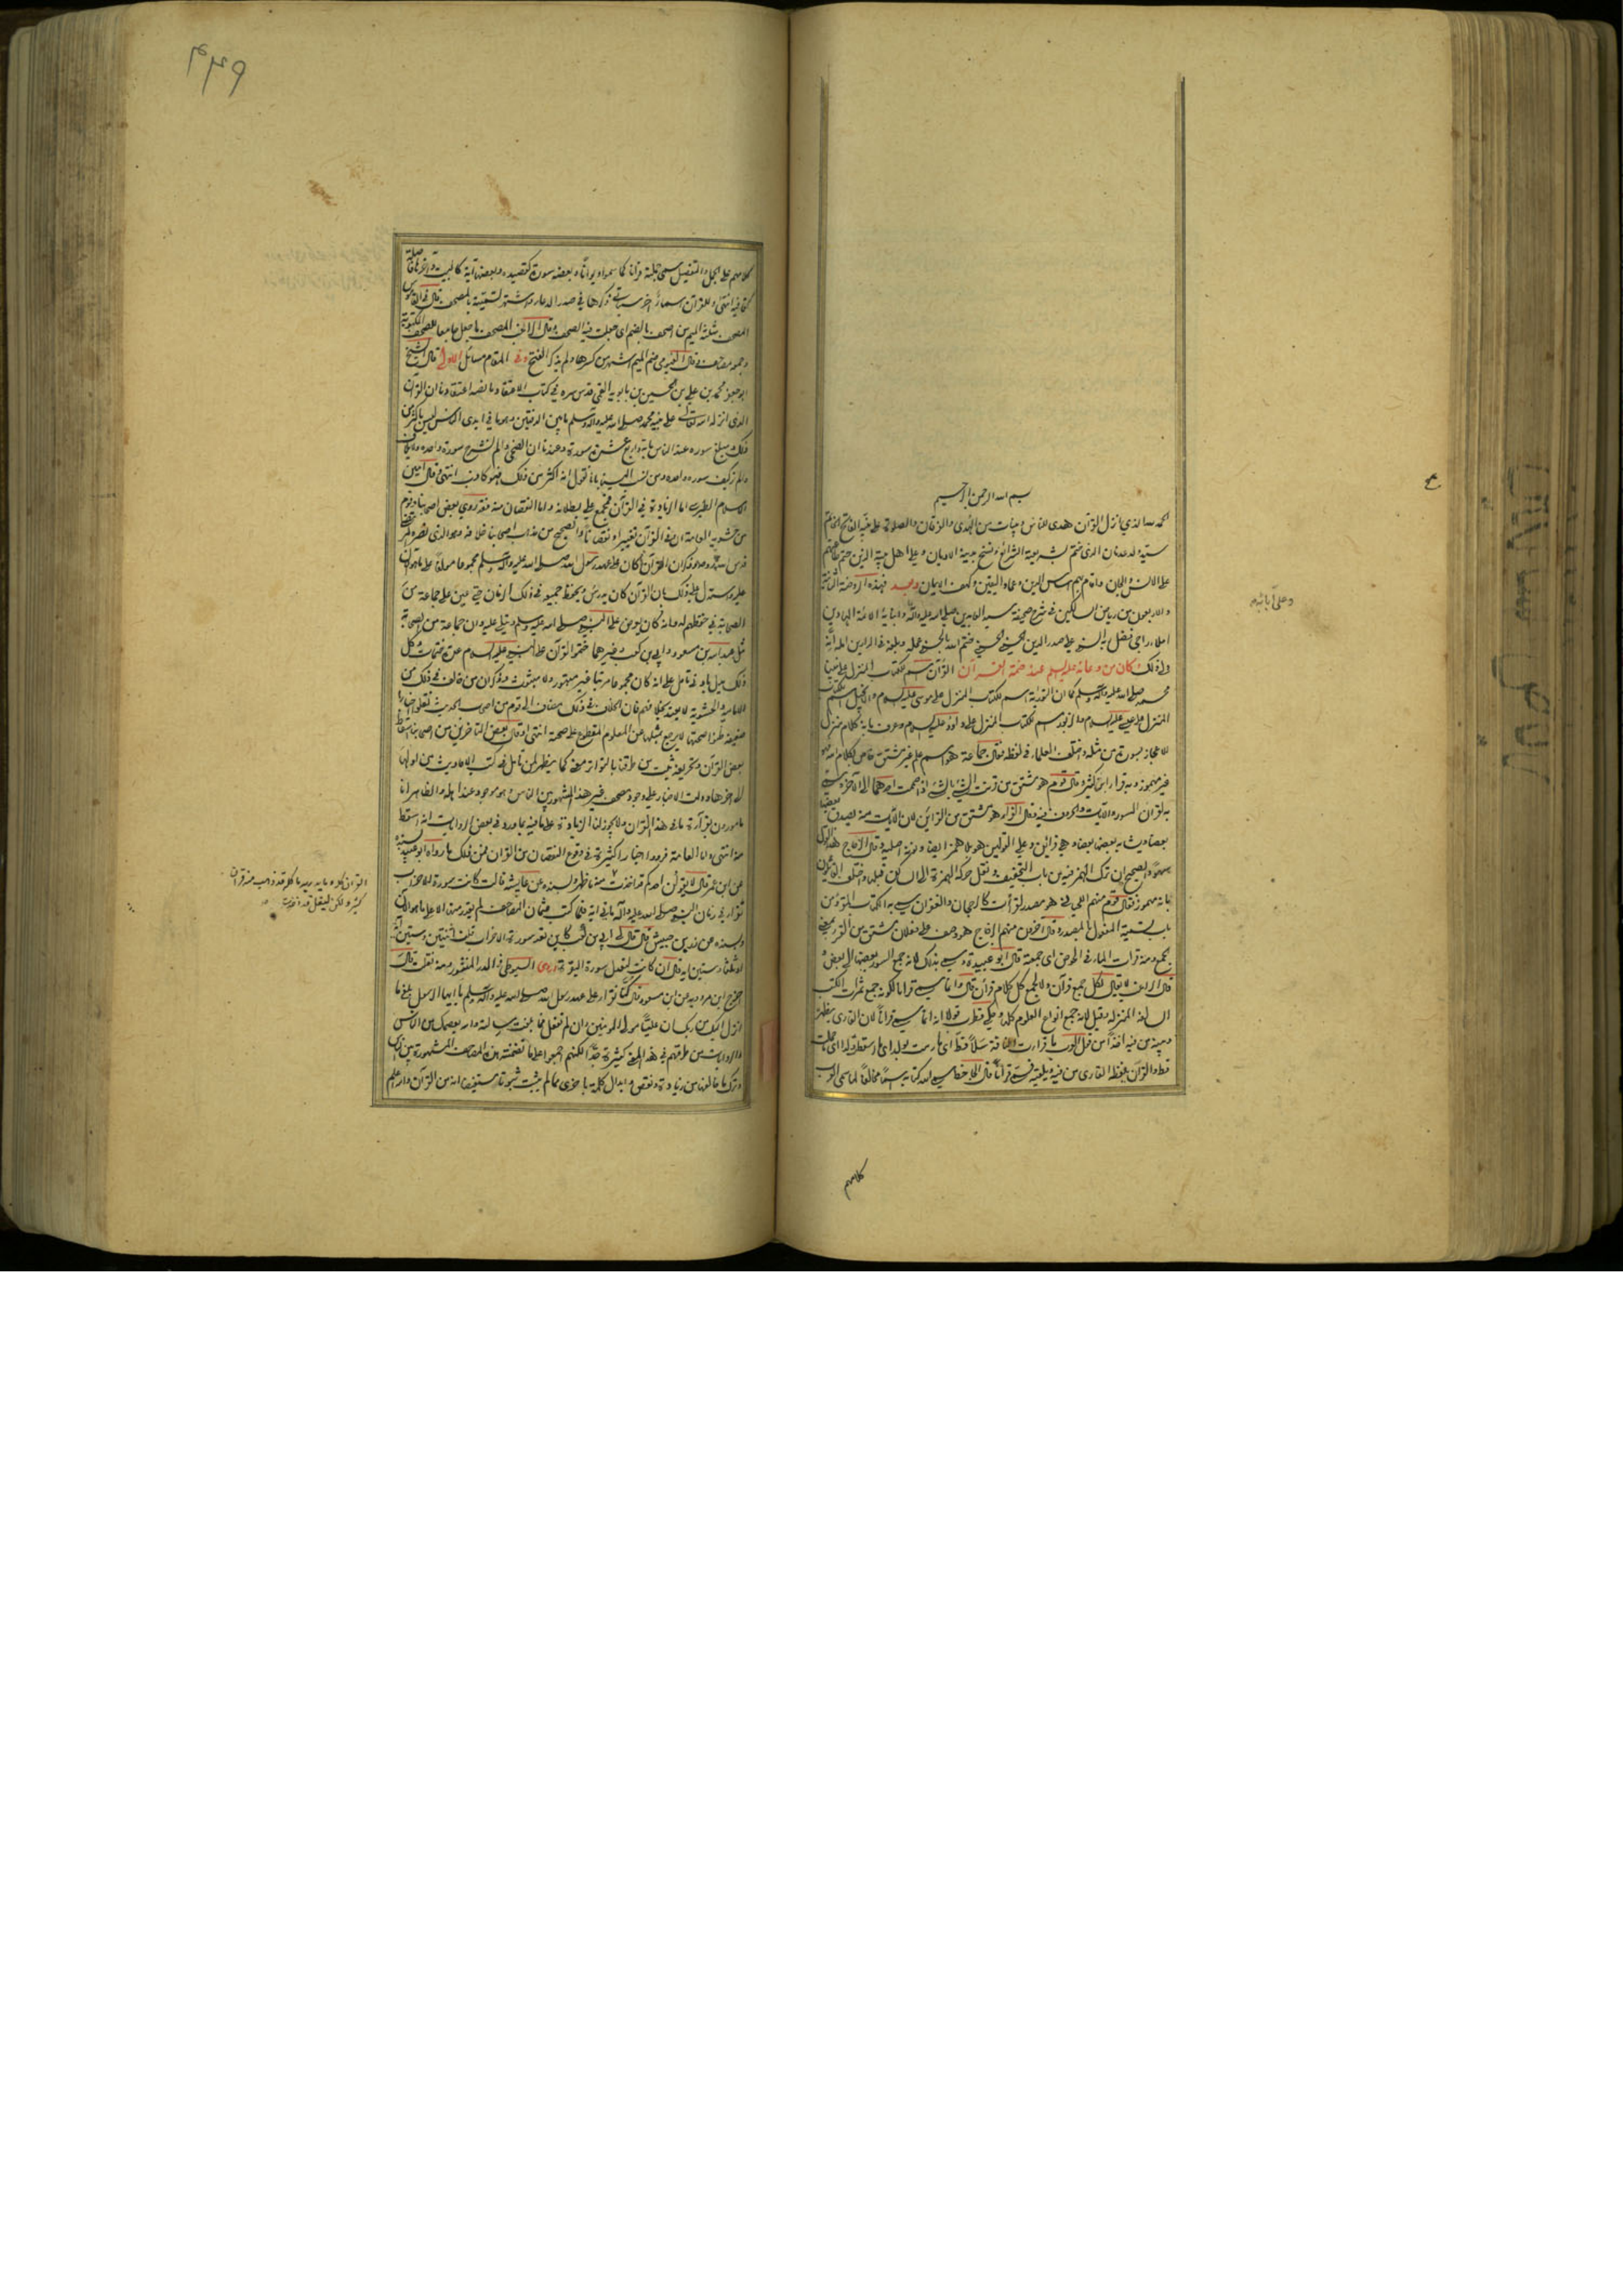 بسم الله الرحمن الرحيم
الحمد لله الذي انزل القرآن هدى للناس وبينات من الهدى والفرقان والصلاة على نبيه الفاتح الخاتم
سيد ولد عدنان الذي ختم بشريعته الشرائع ونسخ بدينه الاديان وعلى اهل بيته الذين
على الانس والجان واقام بهم اساس الدين وعماد اليقين وكهف الايمان وبعد فهذه الروضة الثانية
والاربعون من رياض السالكين في شرح صحيفة سيد العابدين صلى الله عليه وآله وابنائه الائمة الهادين
املاء راجي فضل ربه السني علي صدر الدين الحسيني الحسني ختم الله بالحسنى عمله وبلغه في الدارين امله
وكان من دعائه عليه السلام عند ختمة القرآن القرآن اسم لكتاب المنزل على نبينا
محمد صلى الله عليه وآله وسلم كما ان التوراة اسم للكتاب المنزل على موسى عليه السلام والانجيل اسم للكتاب
المنزل على عيسى عليه السلام والزبور اسم لكتاب المنزل على داود عليه السلام وعرف بانه كلام منزل
للاعجاز بسورة من مثله واختلف العلماء في لفظه فقال جماعة هو اسم علم غير مشتق خاص بكلام الله فهو
غير مهموز وبه قرأ ابن كثير وقال قوم هو مشتق من قرنت الشيء بالشيء اذا ضممت احدهما الى الآخر وسمي
به لقران السور والآيات والحروف فيه وقال الفراء هو مشتق من القرائن لان الآيات منه يصدق بعضها
بعضا ويشابه بعضها بعضا وهي قرائن وعلى القولين هو بلا همز ايضا ونونه اصلية وقال الزجاج هذا القول
سهو والصحيح ان ترك الهمز فيه من باب التخفيف ونقل حركة الهمزة الى الساكن قبلها واختلف القائلون
بانه مهموز فقال قوم منهم اللحياني هو مصدر لقرأت كالرجحان والغفران سمي به الكتاب المقروء من
باب تسمية المفعول بالمصدر وقال آخرون منهم الزجاج هو وصف على فعلان مشتق من القرء بمعنى
الجمع ومنه قرأت الماء في الحوض اي جمعته قال ابو عبيدة وسمي بذلك لانه جمع السور بعضها الى بعض و
قال الراغب لا يقال لكل جمع قرآن ولا لجمع كل كلام قرآن قال وانما سمي قرآنا لكونه جمع ثمرات الكتب
السالفة المنزلة وقيل لانه جمع انواع العلوم كلها وحكى قطرب قولا انه انما سمي قرآنا لان القارئ يظهره
ويبينه من فيه اخذا من قول العرب ما قرأت الناقة سلا قط اي ما رمت بولد اي ما اسقطت ولدا اي ما حملت
قط والقرآن يلفظه القارئ من فيه ويلقيه فسمي قرآنا قال الجاحظ سمى الله كتابه اسما مخالفا لما سمى العرب
وعلى آبائهم
كلامهم
٤٣٩
كلامهم على الجمل والتفصيل سمى جملته قرآنا كما سموا ديوانا وبعضه سورة كقصيدة وبعضها آية كالبيت وآخرها فاصلة
كقافية انتهى وللقرآن اسماء اخر سيأتي ذكرها في صدر الدعاء واشتهر تسميته بالمصحف قال في القاموس
المصحف مثلثة الميم من اصحف بالضم اي جعلت فيه الصحف وقال الراغب المصحف ما جعل جامعا للصحف المكتوبة
وجمعه مصاحف قال الفيومي ضم الميم اشهر من كسرها ولم يذكر الفتح وفي المقام مسائل الاولى قال الشيخ
ابو جعفر محمد بن علي بن الحسين بن بابويه القمي قدس سره في كتاب الاعتقاد ما نصه اعتقادنا ان القرآن
الذي انزله الله تعالى على نبيه محمد صلى الله عليه وآله وسلم ما بين الدفتين وهو ما في ايدي الناس ليس باكثر من
ذلك ومبلغ سوره عند الناس مائة واربع عشرة سورة وعندنا ان الضحى والم نشرح سورة واحدة ولايلاف
والم تر كيف سورة واحدة ومن نسب الينا بانا نقول انه اكثر من ذلك فهو كاذب انتهى وقال امين
الاسلام الطبرسي اما الزيادة في القرآن فمجمع على بطلانه واما النقصان منه فقد روى بعض اصحابنا وقوم
من حشوية العامة ان في القرآن تغييرا ونقصانا والصحيح من مذهب اصحابنا خلافه وهو الذي نصره المرتضى
قدس الله سره وذكر ان القرآن كان على عهد رسول الله صلى الله عليه وآله وسلم مجموعا مؤلفا على ما هو الآن
عليه واستدل على ذلك بان القرآن كان يدرس ويحفظ جميعه في ذلك الزمان حتى عين على جماعة من
الصحابة في حفظهم له وانه كان يعرض على النبي صلى الله عليه وسلم ويتلى عليه وان جماعة من الصحابة
مثل عبد الله بن مسعود وابي بن كعب وغيرهما ختموا القرآن على النبي عليه السلام عدة ختمات وكل
ذلك يدل بادنى تأمل على انه كان مجموعا مرتبا غير مبتور ولا مبثوث وذكر ان من خالف في ذلك من
الامامية والحشوية لا يعتد بخلافهم فان الخلاف في ذلك مضاف الى قوم من اصحاب الحديث نقلوا اخبارا
ضعيفة ظنوا صحتها لا يرجع بمثلها عن المعلوم المقطوع على صحته انتهى وقال بعض المتأخرين من اصحابنا اسقاط
بعض القرآن وتحريفه ثبت من طرقنا بالتواتر معنى كما يظهر لمن تأمل في كتب الاحاديث من اولها
الى آخرها ودلت الاخبار على وجود مصحف غير هذا المشهور بين الناس وهو موجود عند اهله والظاهر انا
مأمورون بقراءة ما في هذا القرآن ولا يجوز لنا الزيادة على ما فيه بما ورد في بعض الروايات انه اسقط
منه انتهى واما العامة فرووا اخبارا كثيرة في وقوع النقصان من القرآن فمن ذلك ما رواه ابو عبيد بسنده
عن ابن عمر قال لا يقولن احدكم قد اخذت منه ما ظهر وبسنده عن عايشة قالت كانت سورة الاحزاب
تقرأ في زمان النبي صلى الله عليه وآله مائتي آية فلما كتب عثمان المصاحف لم نقدر منها الا على ما هو الآن
وبسنده عن زر بن حبيش قال قال لي ابي بن كعب كاين تعد سورة الاحزاب قلت اثنتين وستين آية
او ثلثا وستين آية قال ان كانت لتعدل سورة البقرة وروى السيوطي في الدر المنثور ومنه نقل قال
اخرج ابن مردويه عن ابن مسعود قال كنا نقرأ على عهد رسول الله صلى الله عليه وآله وسلم يا ايها الرسول بلغ ما
انزل اليك من ربك ان عليا مولى المؤمنين وان لم تفعل فما بلغت رسالته والله يعصمك من الناس
والروايات من طرقهم في هذا المعنى كثيرة جدا لكنهم اجمعوا على ما تضمنته هذه المصاحف المشهورة من
وترك ما خالفها من زيادة ونقص وابدال كلمة باخرى مما لم يثبت ثبوتا مستفيضا انه من القرآن والله اعلم
القرآن كله وما يدريه ما كله قد ذهب منه قرآن
كثير ولكن ليقل قد اخذت